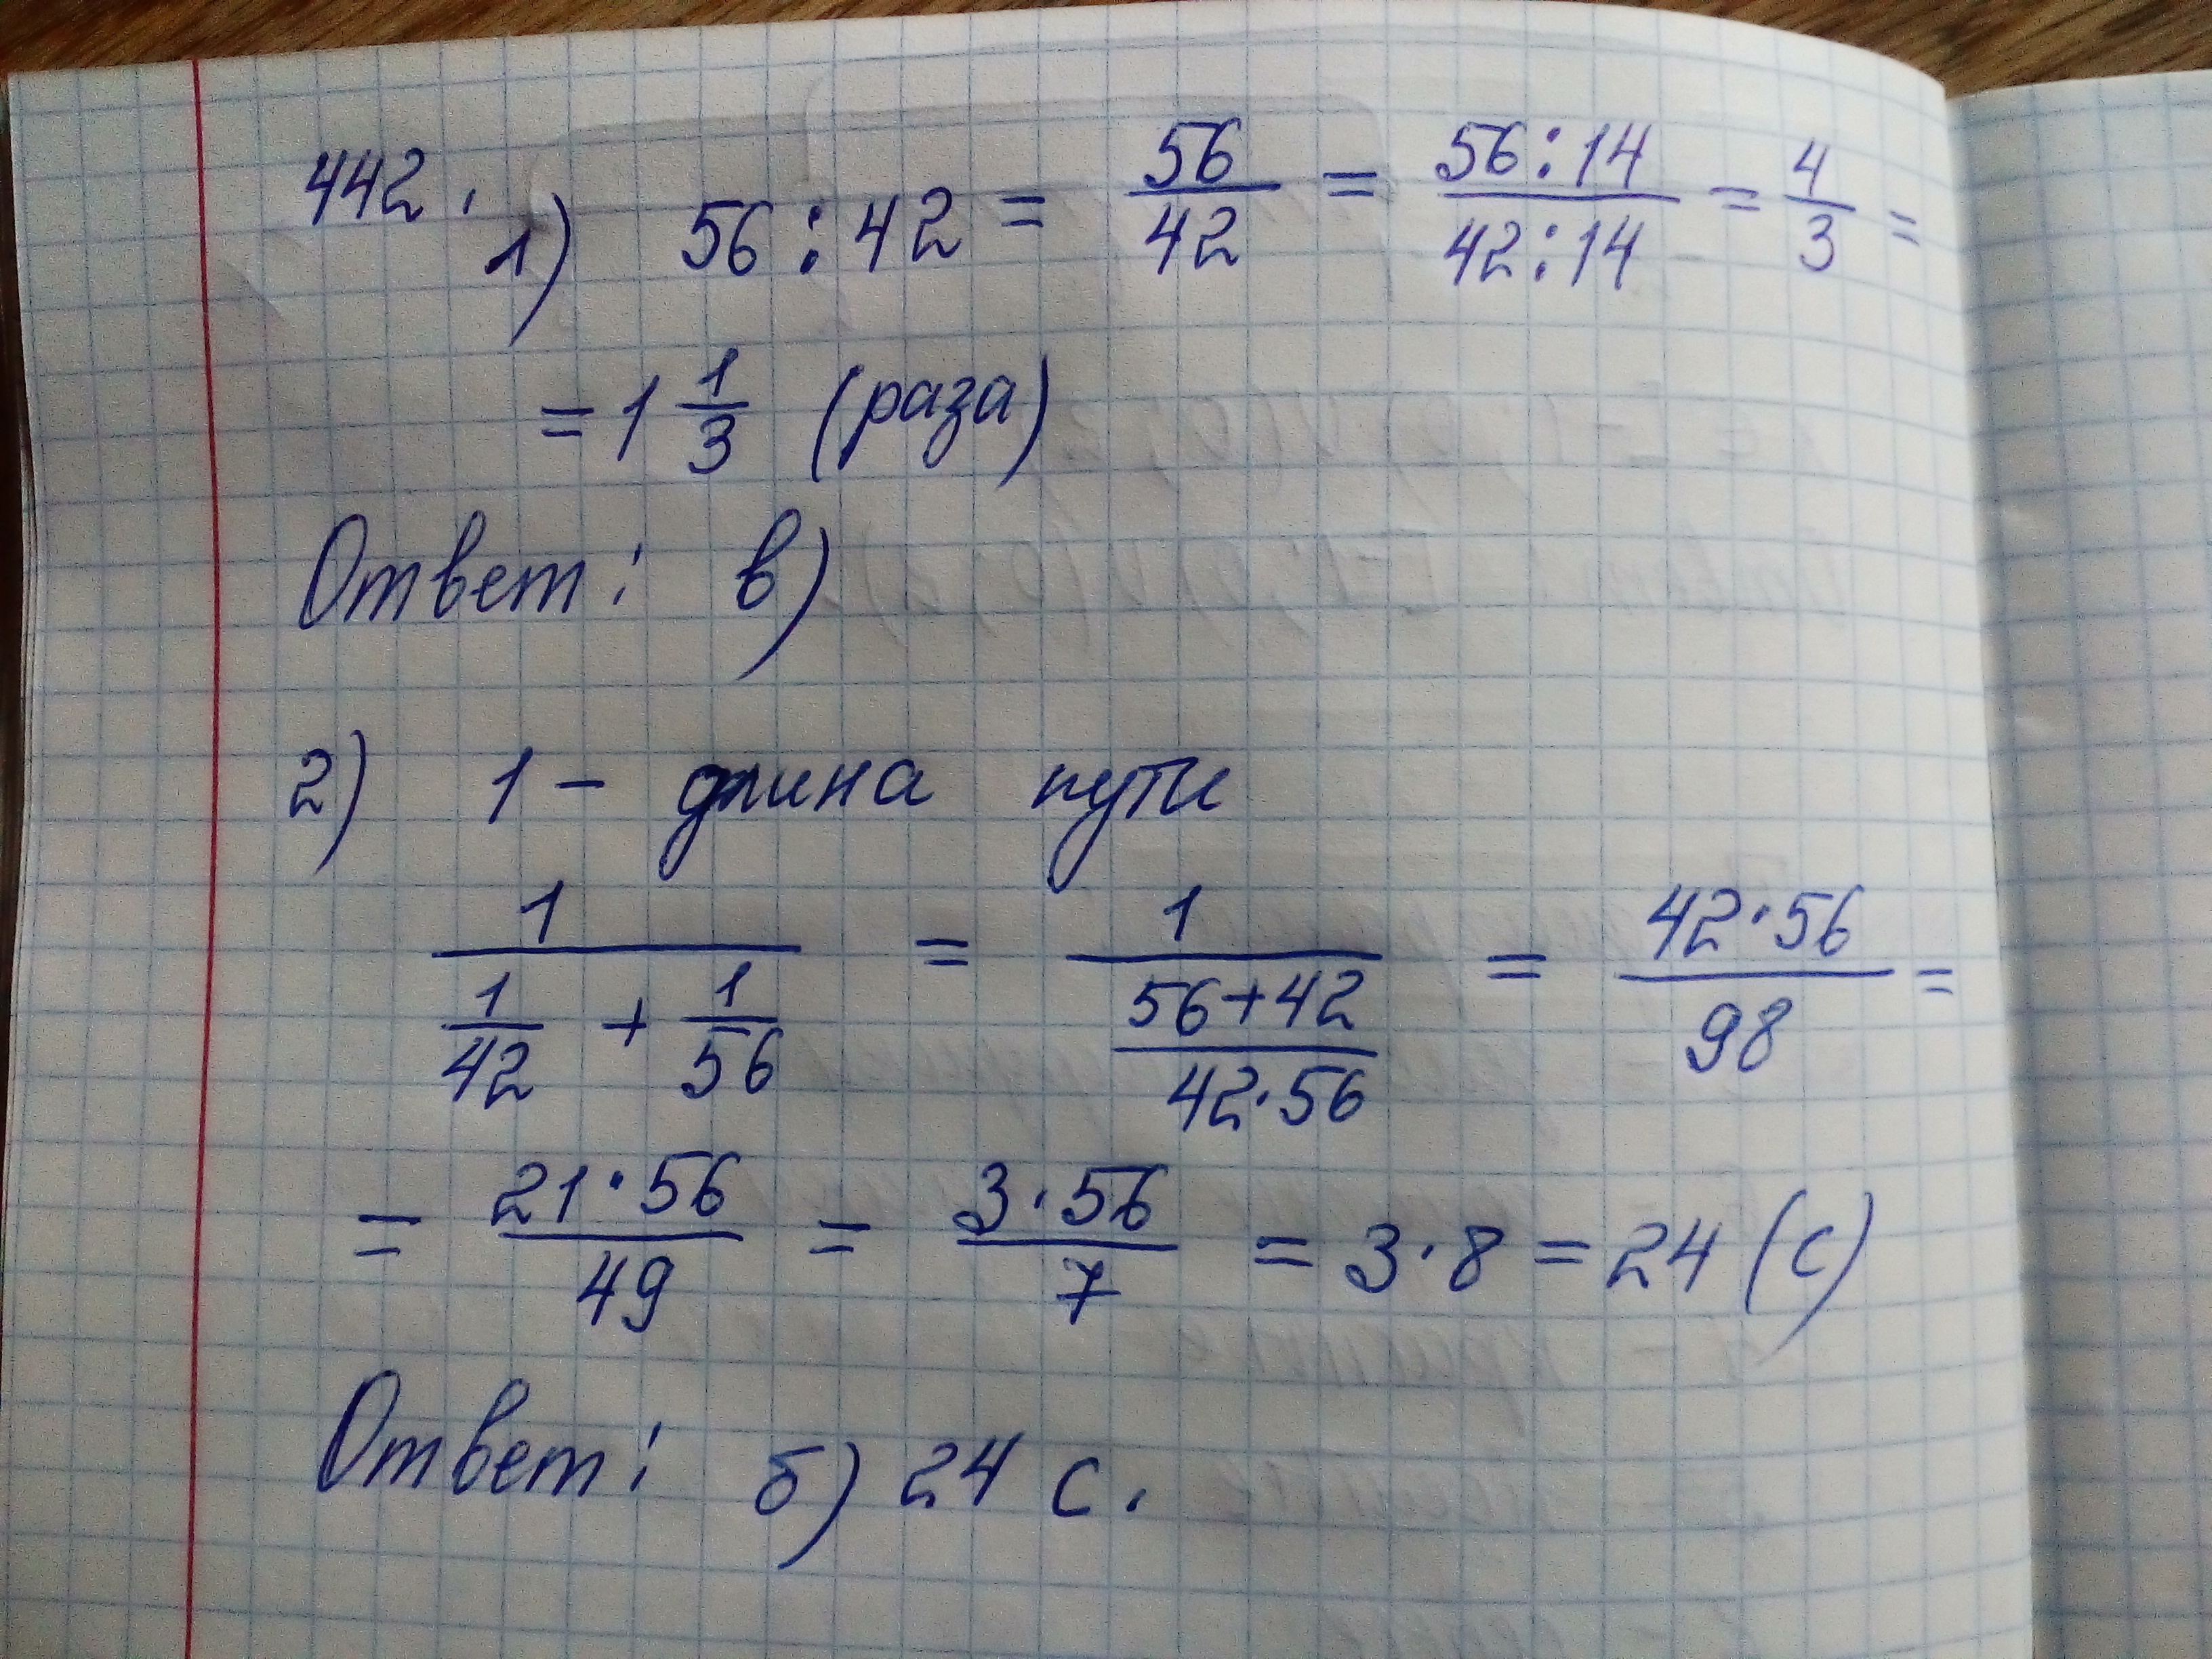 442. 1) 56 : 42 = 56/42 = 56:14/42:14 = 4/3 =
= 1 1/3 (раза)
Ответ: в)
2) 1 – длина пути
1/(1/42 + 1/56) = 1/((56+42)/(42·56)) = 42·56/98 =
= 21·56/49 = 3·56/7 = 3·8 = 24 (с)
Ответ: б) 24 с.